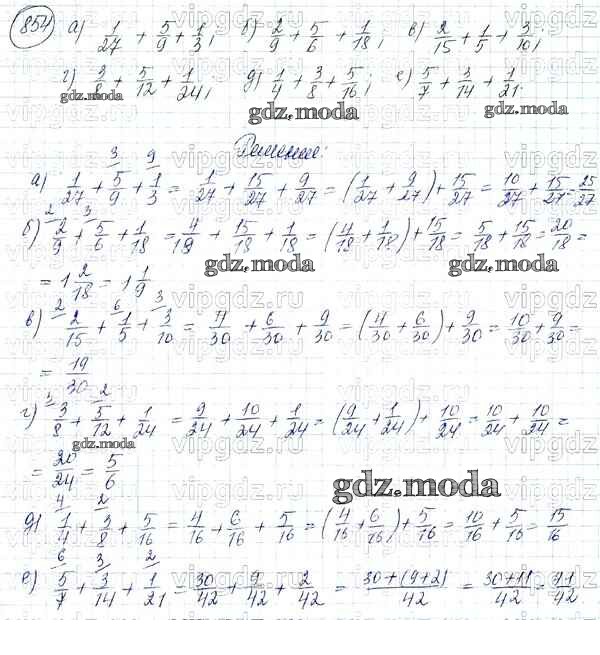 854 а) 1/27 + 5/9 + 1/3; б) 2/9 + 5/6 + 1/18; в) 2/15 + 1/5 + 3/10;
г) 3/8 + 5/12 + 1/24; д) 1/4 + 3/8 + 5/16; е) 5/7 + 3/14 + 1/21.
Решение:
а) 1/27 + 5/9 + 1/3 = 1/27 + 15/27 + 9/27 = (1/27 + 9/27) + 15/27 = 10/27 + 15/27 = 25/27
б) 2/9 + 5/6 + 1/18 = 4/18 + 15/18 + 1/18 = (4/18 + 1/18) + 15/18 = 5/18 + 15/18 = 20/18 =
= 1 2/18 = 1 1/9
в) 2/15 + 1/5 + 3/10 = 4/30 + 6/30 + 9/30 = (4/30 + 6/30) + 9/30 = 10/30 + 9/30 =
= 19/30
г) 3/8 + 5/12 + 1/24 = 9/24 + 10/24 + 1/24 = (9/24 + 1/24) + 10/24 = 10/24 + 10/24 =
= 20/24 = 5/6
д) 1/4 + 3/8 + 5/16 = 4/16 + 6/16 + 5/16 = (4/16 + 6/16) + 5/16 = 10/16 + 5/16 = 15/16
е) 5/7 + 3/14 + 1/21 = 30/42 + 9/42 + 2/42 = 30+(9+2)/42 = 30+11/42 = 41/42.
gdz.moda
vipgdz.ru